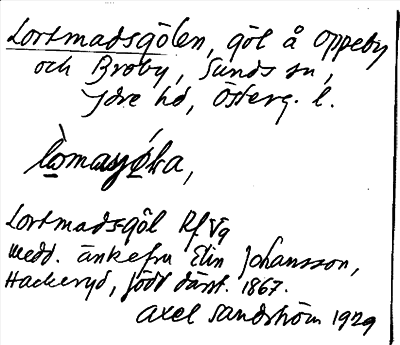 Lortmadsgölen, göl å Oppeby
och Broby, Sunds sn,
Ydre hd, Österg. l.
Lortmadsgöl Rf Vg
medd. änkefru Elin Johansson,
Hackeryd, född därst. 1867.
Axel Sandström 1929